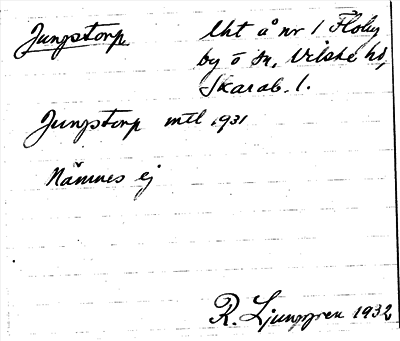 Jungstorp lht å nr 1 Floby
by o sn, Vilske hd,
Skarab. l.
Jungstorp mtl 1931
Nämnes ej
R. Ljunggren 1932